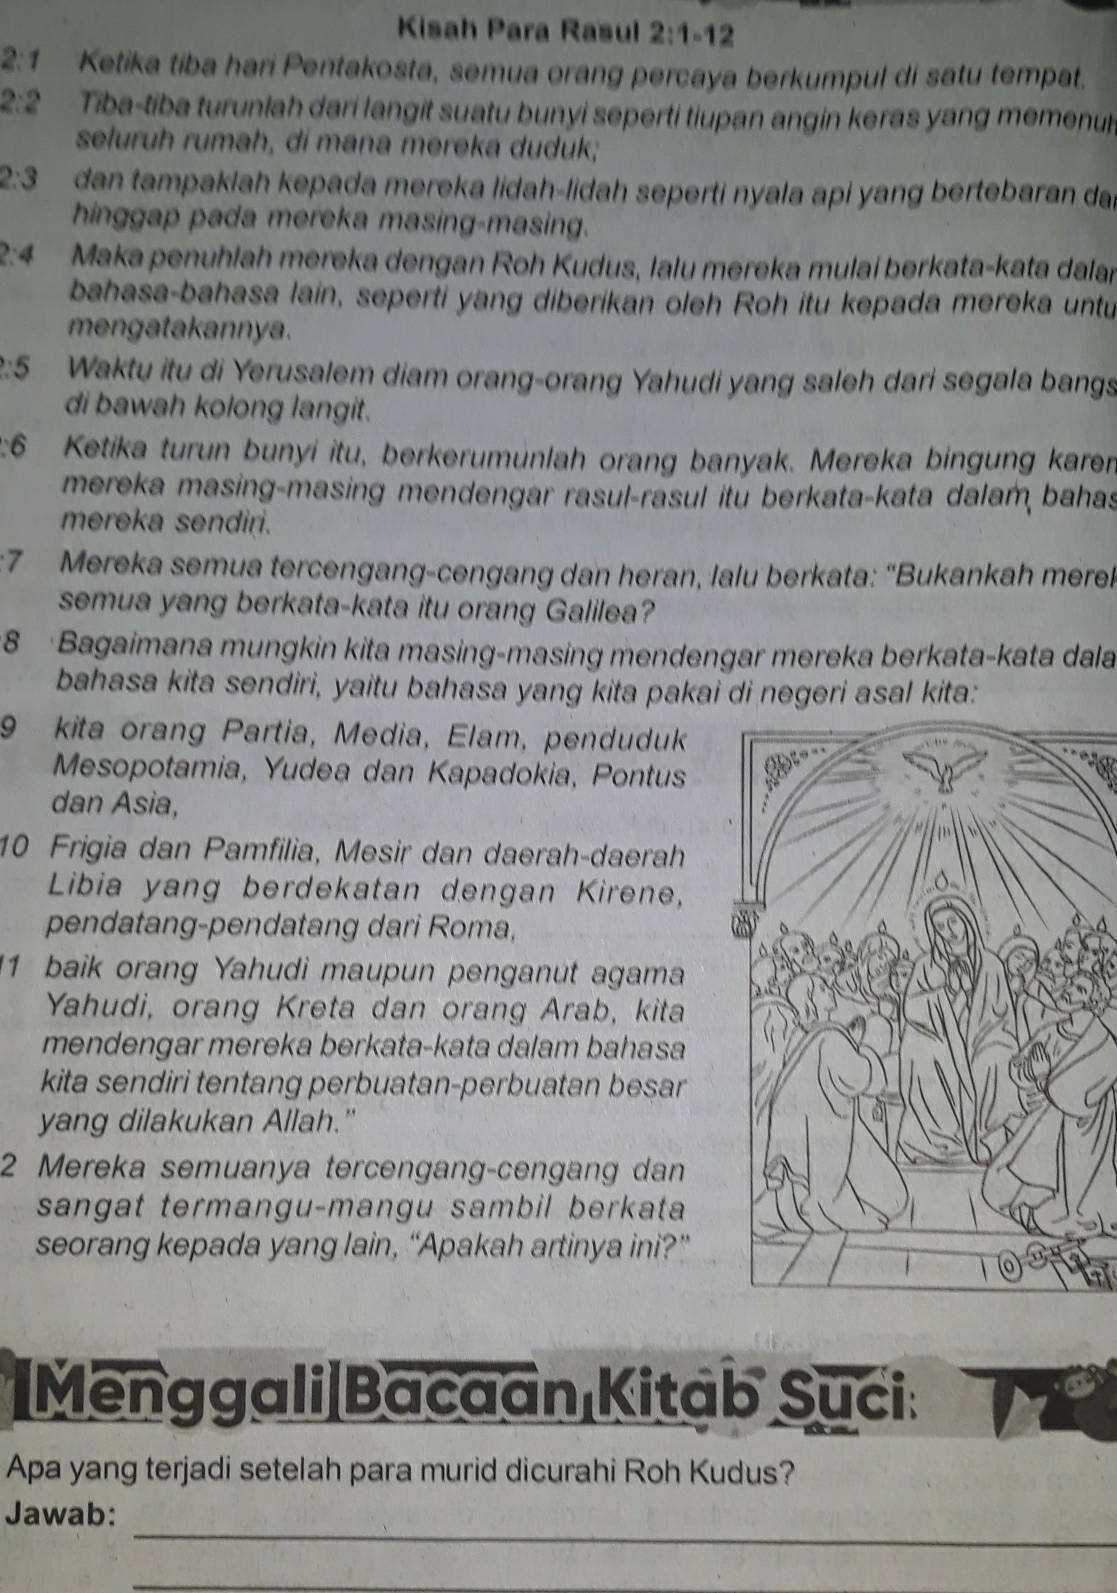 Kisah Para Rasul 2:1-12
2:1 Ketika tiba hari Pentakosta, semua orang percaya berkumpul di satu tempat.
2:2 Tiba-tiba turunlah dari langit suatu bunyi seperti tiupan angin keras yang memenuh
seluruh rumah, di mana mereka duduk;
2:3 dan tampaklah kepada mereka lidah-lidah seperti nyala api yang bertebaran da
hinggap pada mereka masing-masing.
2:4 Maka penuhlah mereka dengan Roh Kudus, lalu mereka mulai berkata-kata dala
bahasa-bahasa lain, seperti yang diberikan oleh Roh itu kepada mereka untu
mengatakannya.
2:5 Waktu itu di Yerusalem diam orang-orang Yahudi yang saleh dari segala bangs
di bawah kolong langit.
:6 Ketika turun bunyi itu, berkerumunlah orang banyak. Mereka bingung karen
mereka masing-masing mendengar rasul-rasul itu berkata-kata dalam bahas
mereka sendiri.
:7 Mereka semua tercengang-cengang dan heran, lalu berkata: "Bukankah merek
semua yang berkata-kata itu orang Galilea?
8 Bagaimana mungkin kita masing-masing mendengar mereka berkata-kata dala
bahasa kita sendiri, yaitu bahasa yang kita pakai di negeri asal kita:
9 kita orang Partia, Media, Elam, penduduk
Mesopotamia, Yudea dan Kapadokia, Pontus
dan Asia,
10 Frigia dan Pamfilia, Mesir dan daerah-daerah
Libia yang berdekatan dengan Kirene,
pendatang-pendatang dari Roma,
11 baik orang Yahudi maupun penganut agama
Yahudi, orang Kreta dan orang Arab, kita
mendengar mereka berkata-kata dalam bahasa
kita sendiri tentang perbuatan-perbuatan besar
yang dilakukan Allah."
2 Mereka semuanya tercengang-cengang dan
sangat termangu-mangu sambil berkata
seorang kepada yang lain, "Apakah artinya ini?"
Menggali Bacaan Kitab Suci:
Apa yang terjadi setelah para murid dicurahi Roh Kudus?
Jawab: